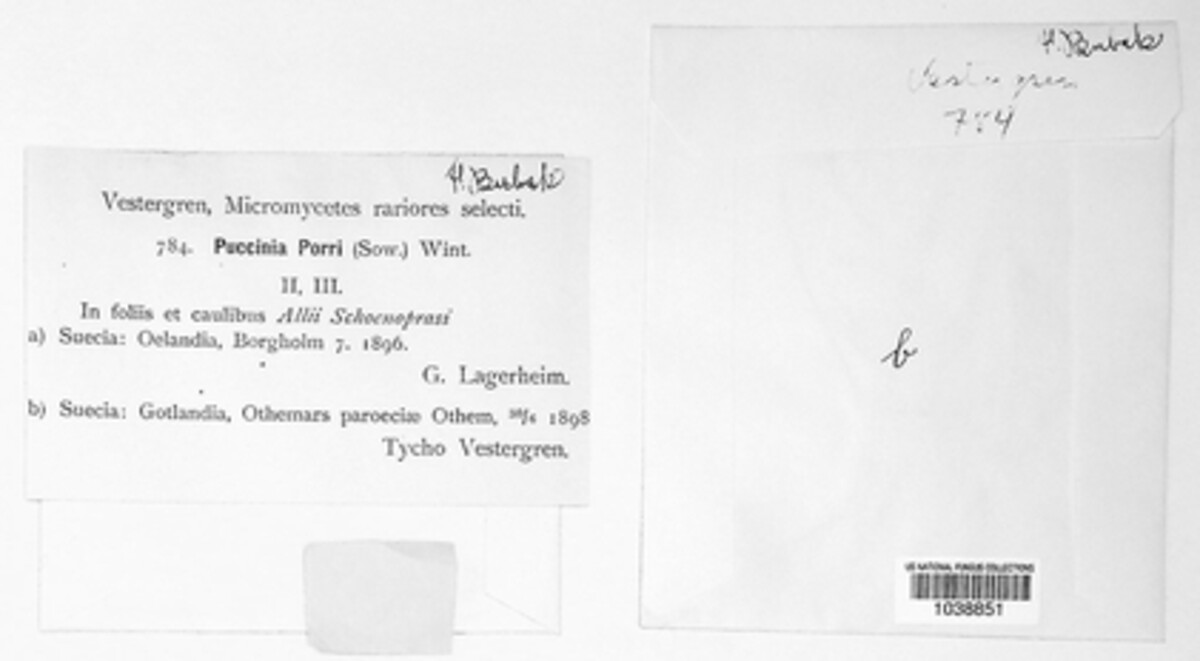 H. Bubák
Vestergren, Micromycetes rariores selecti.
784. Puccinia Porri (Sow.) Wint.
II, III.
In foliis et caulibus Allii Schoenoprasi
a) Suecia: Oelandia, Borgholm 7. 1896.
G. Lagerheim.
b) Suecia: Gotlandia, Othemars paroeciæ Othem, 1898
Tycho Vestergren.
Vestergren
784
b
US NATIONAL FUNGUS COLLECTIONS
1038851